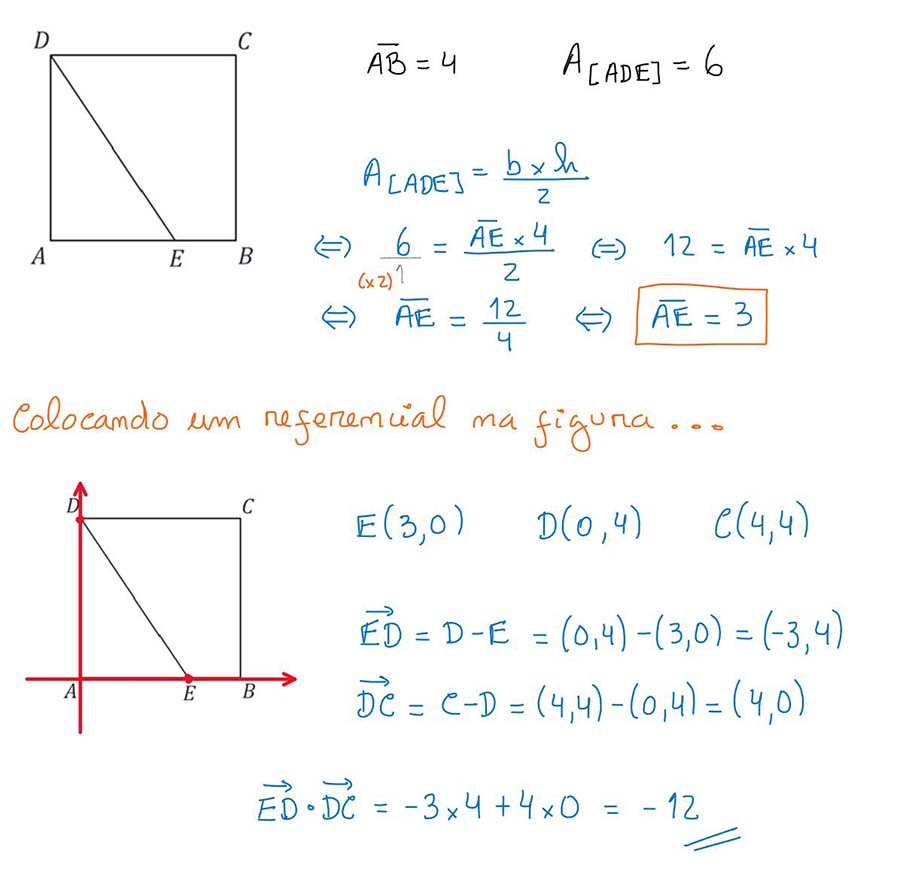 D C
A E B
A̅B̅ = 4 A[ADE] = 6
A[ADE] = b × h / 2
⇔ 6/1 = A̅E̅ × 4 / 2 ⇔ 12 = A̅E̅ × 4
(×2)
⇔ A̅E̅ = 12/4 ⇔ A̅E̅ = 3
Colocando um referencial na figura ...
D C
A E B
E(3,0) D(0,4) C(4,4)
E⃗D⃗ = D - E = (0,4) - (3,0) = (-3,4)
D⃗C⃗ = C - D = (4,4) - (0,4) = (4,0)
E⃗D⃗ · D⃗C⃗ = -3 × 4 + 4 × 0 = -12